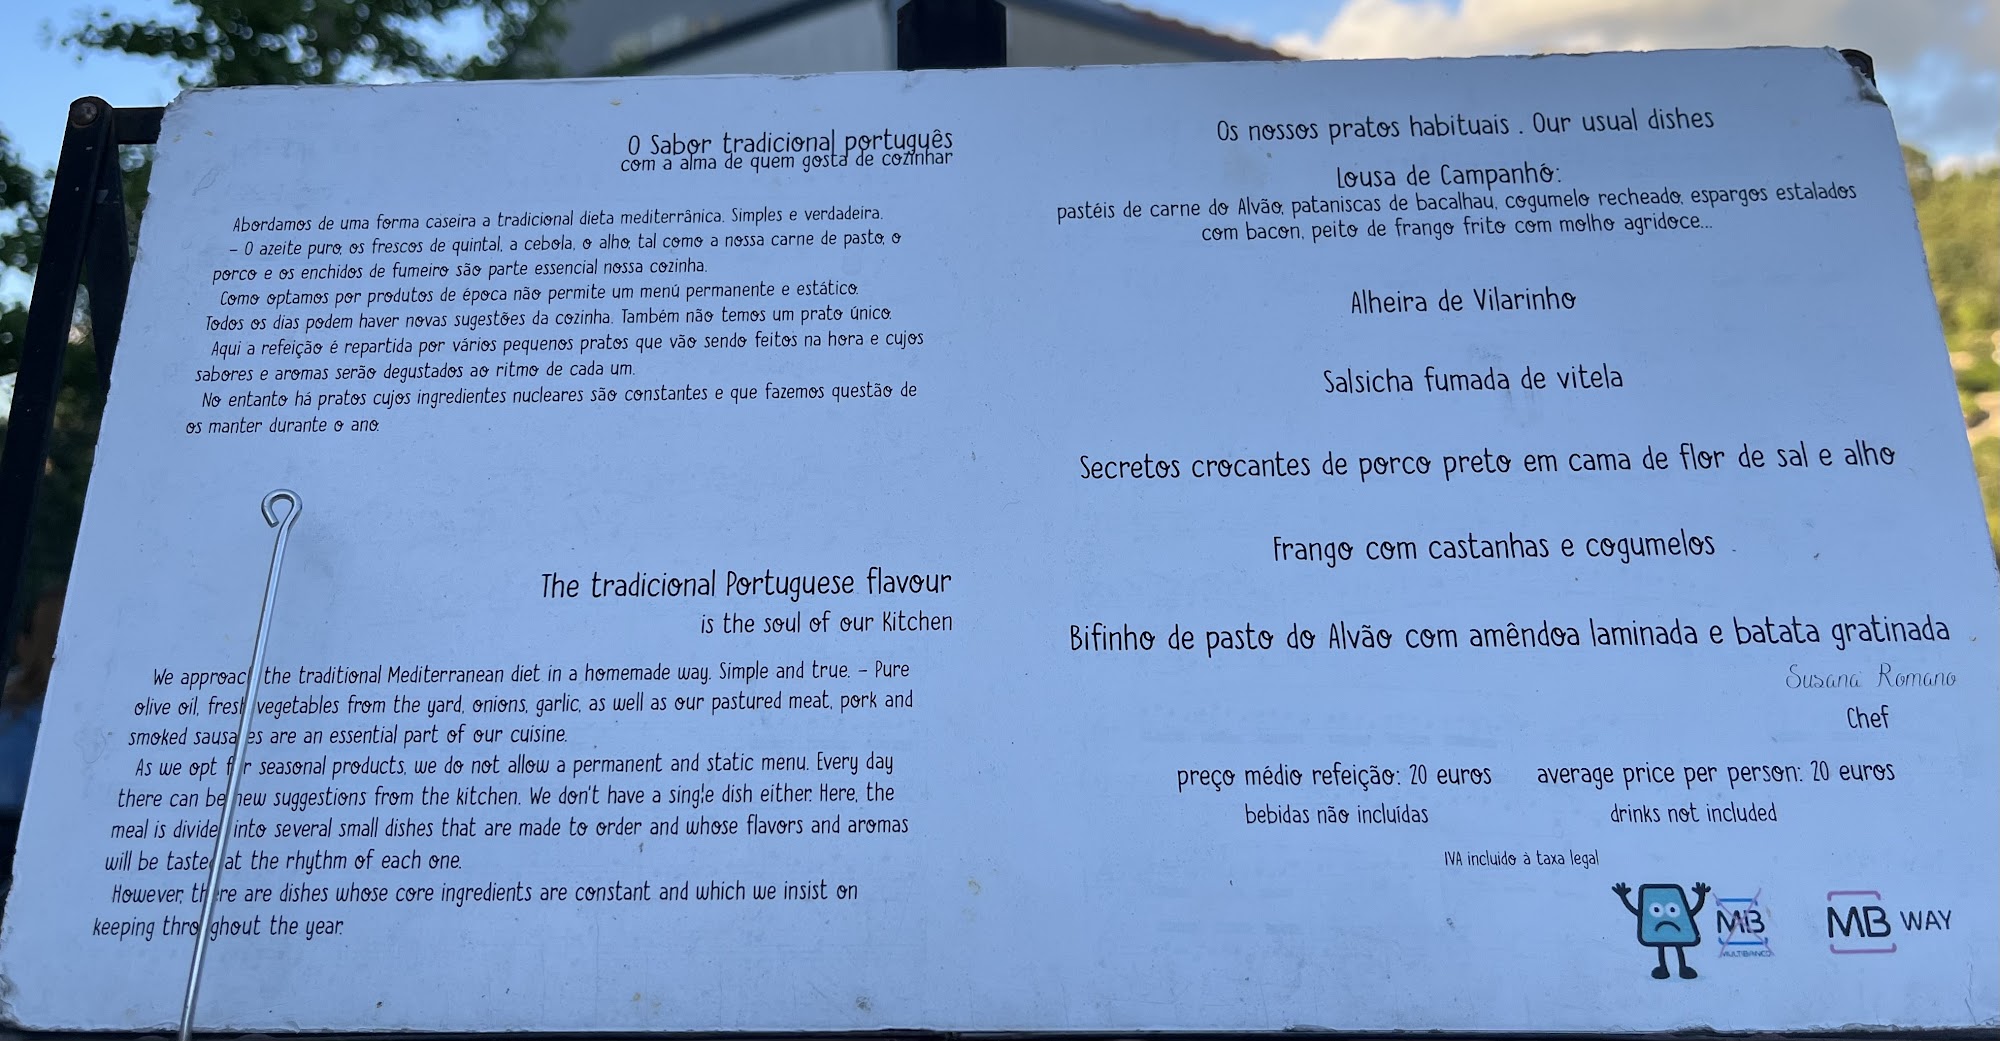 O Sabor tradicional português
com a alma de quem gosta de cozinhar
Abordamos de uma forma caseira a tradicional dieta mediterrânica. Simples e verdadeira.
– O azeite puro, os frescos de quintal, a cebola, o alho, tal como a nossa carne de pasto, o
porco e os enchidos de fumeiro são parte essencial nossa cozinha.
Como optamos por produtos de época não permite um menú permanente e estático.
Todos os dias podem haver novas sugestões da cozinha. Também não temos um prato único.
Aqui a refeição é repartida por vários pequenos pratos que vão sendo feitos na hora e cujos
sabores e aromas serão degustados ao ritmo de cada um.
No entanto há pratos cujos ingredientes nucleares são constantes e que fazemos questão de
os manter durante o ano.
The tradicional Portuguese flavour
is the soul of our Kitchen
We approach the traditional Mediterranean diet in a homemade way. Simple and true. – Pure
olive oil, fresh vegetables from the yard, onions, garlic, as well as our pastured meat, pork and
smoked sausages are an essential part of our cuisine.
As we opt for seasonal products, we do not allow a permanent and static menu. Every day
there can be new suggestions from the kitchen. We don't have a single dish either. Here, the
meal is divided into several small dishes that are made to order and whose flavors and aromas
will be tasted at the rhythm of each one.
However, there are dishes whose core ingredients are constant and which we insist on
keeping throughout the year.
Os nossos pratos habituais . Our usual dishes
Lousa de Campanhó:
pastéis de carne do Alvão, pataniscas de bacalhau, cogumelo recheado, espargos estalados
com bacon, peito de frango frito com molho agridoce...
Alheira de Vilarinho
Salsicha fumada de vitela
Secretos crocantes de porco preto em cama de flor de sal e alho
Frango com castanhas e cogumelos
Bifinho de pasto do Alvão com amêndoa laminada e batata gratinada
Susana Romano
Chef
preço médio refeição: 20 euros average price per person: 20 euros
bebidas não incluídas drinks not included
IVA incluido à taxa legal
MB MB WAY
MULTIBANCO